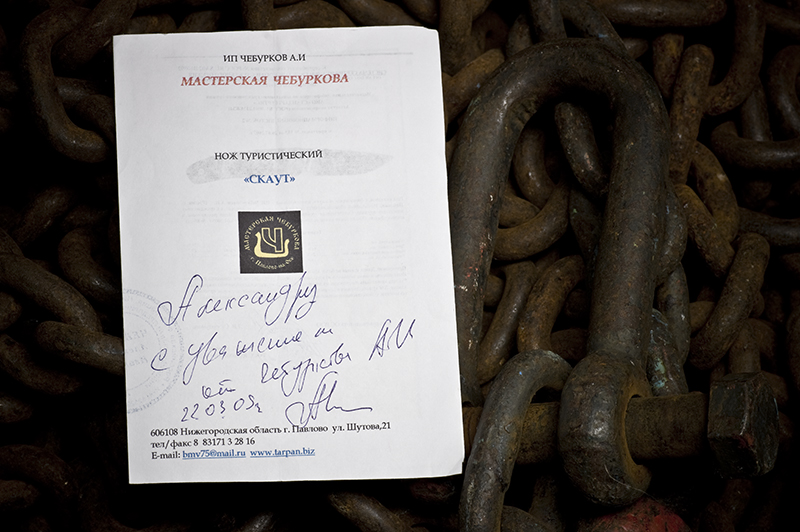 ИП ЧЕБУРКОВ А.И
МАСТЕРСКАЯ ЧЕБУРКОВА
НОЖ ТУРИСТИЧЕСКИЙ
«СКАУТ»
МАСТЕРСКАЯ ЧЕБУРКОВА
Ч
Александру
с уважением
от Чебуркова А.И
22.03.09г
606108 Нижегородская область г. Павлово ул. Шутова,21
тел/факс 8 83171 3 28 16
E-mail: bmv75@mail.ru www.tarpan.biz